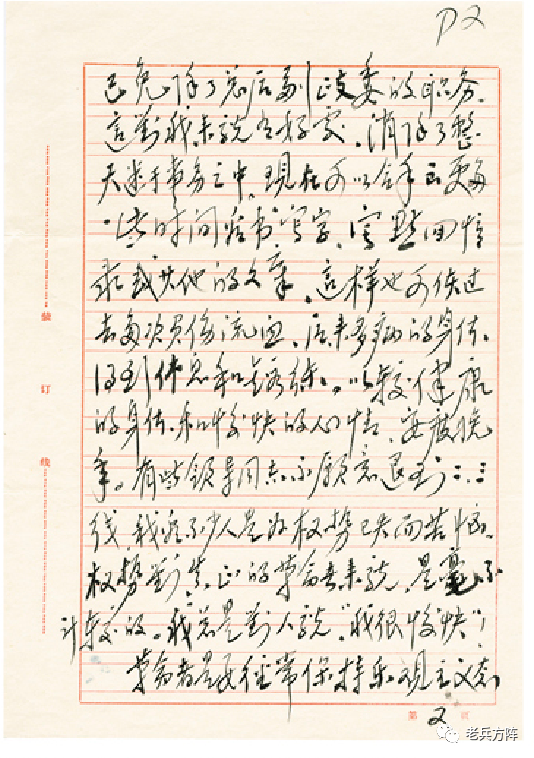 P2
已免除了总后副政委的职务。
这對我来说是好事，消除了整
天迷于事务之中，现在可以合手正更每
一些时间看书写字，写點回憶
录或其他的文章。这样也可使过
去每次负伤流血，后来多病的身体，
得到休息和锻练。以较健康
的身体和愉快的心情，安度晚
年。有些领导同志不愿意退到二.三
线，我看不少人是为权势已失而苦恼。
权势對真正的革命者来说，是毫不
计较的。我总是對人说，"我很愉快"！
革命者是要经常保持乐观主义的
装
订
线
第 2 页
老兵方阵